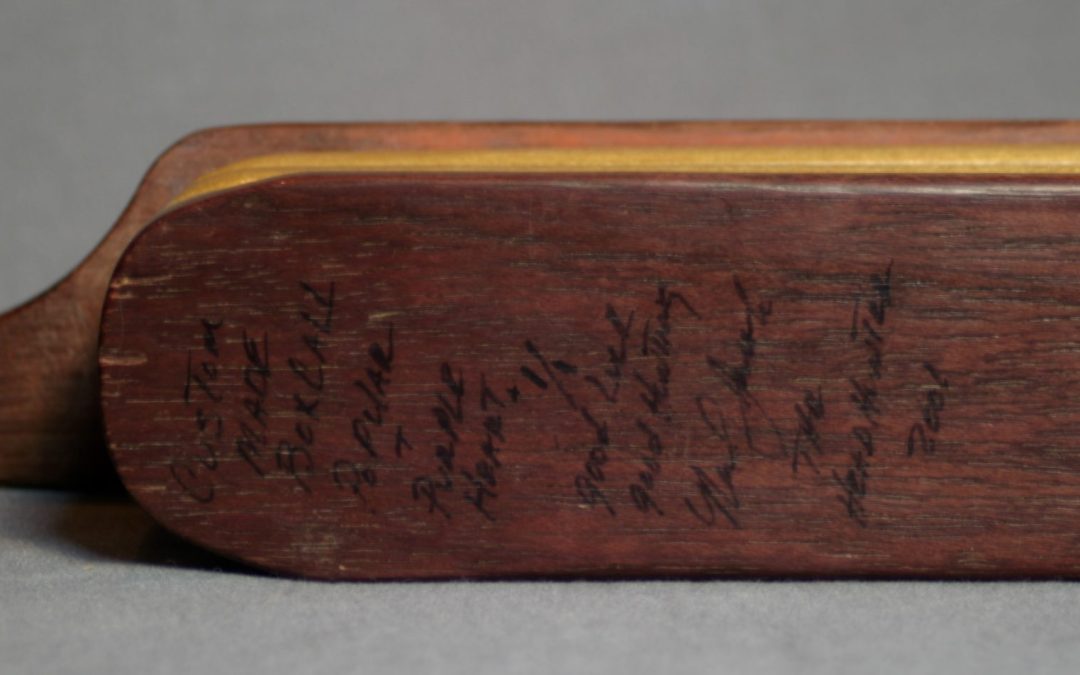 CUSTOM
MADE
BOXCALL
POPULAR
+
PURPLE
HEART.
1/1
good luck
good Hunting
THE
HEADHUNTER
2001